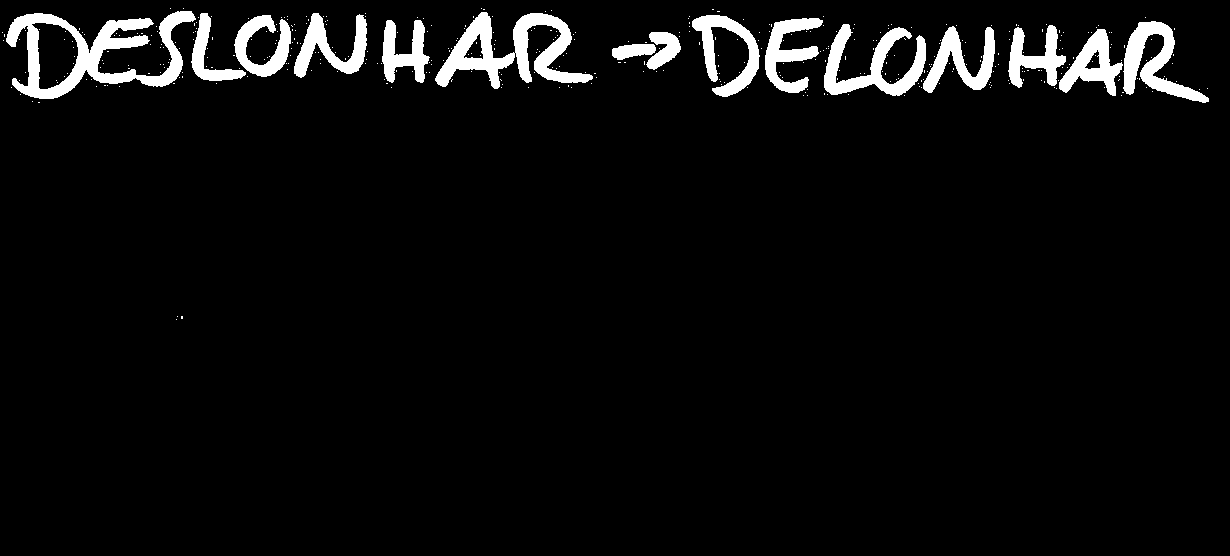 DESLONHAR → DELONHAR